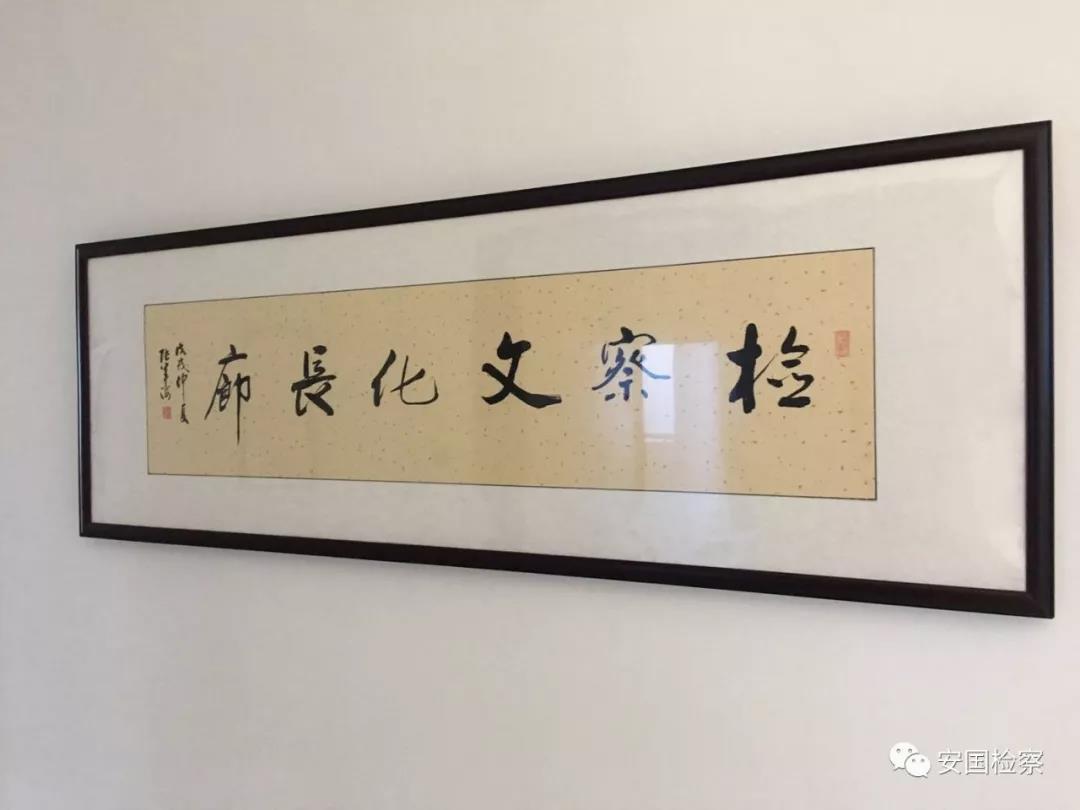 检察文化長廊
戊戌仲夏
安国检察